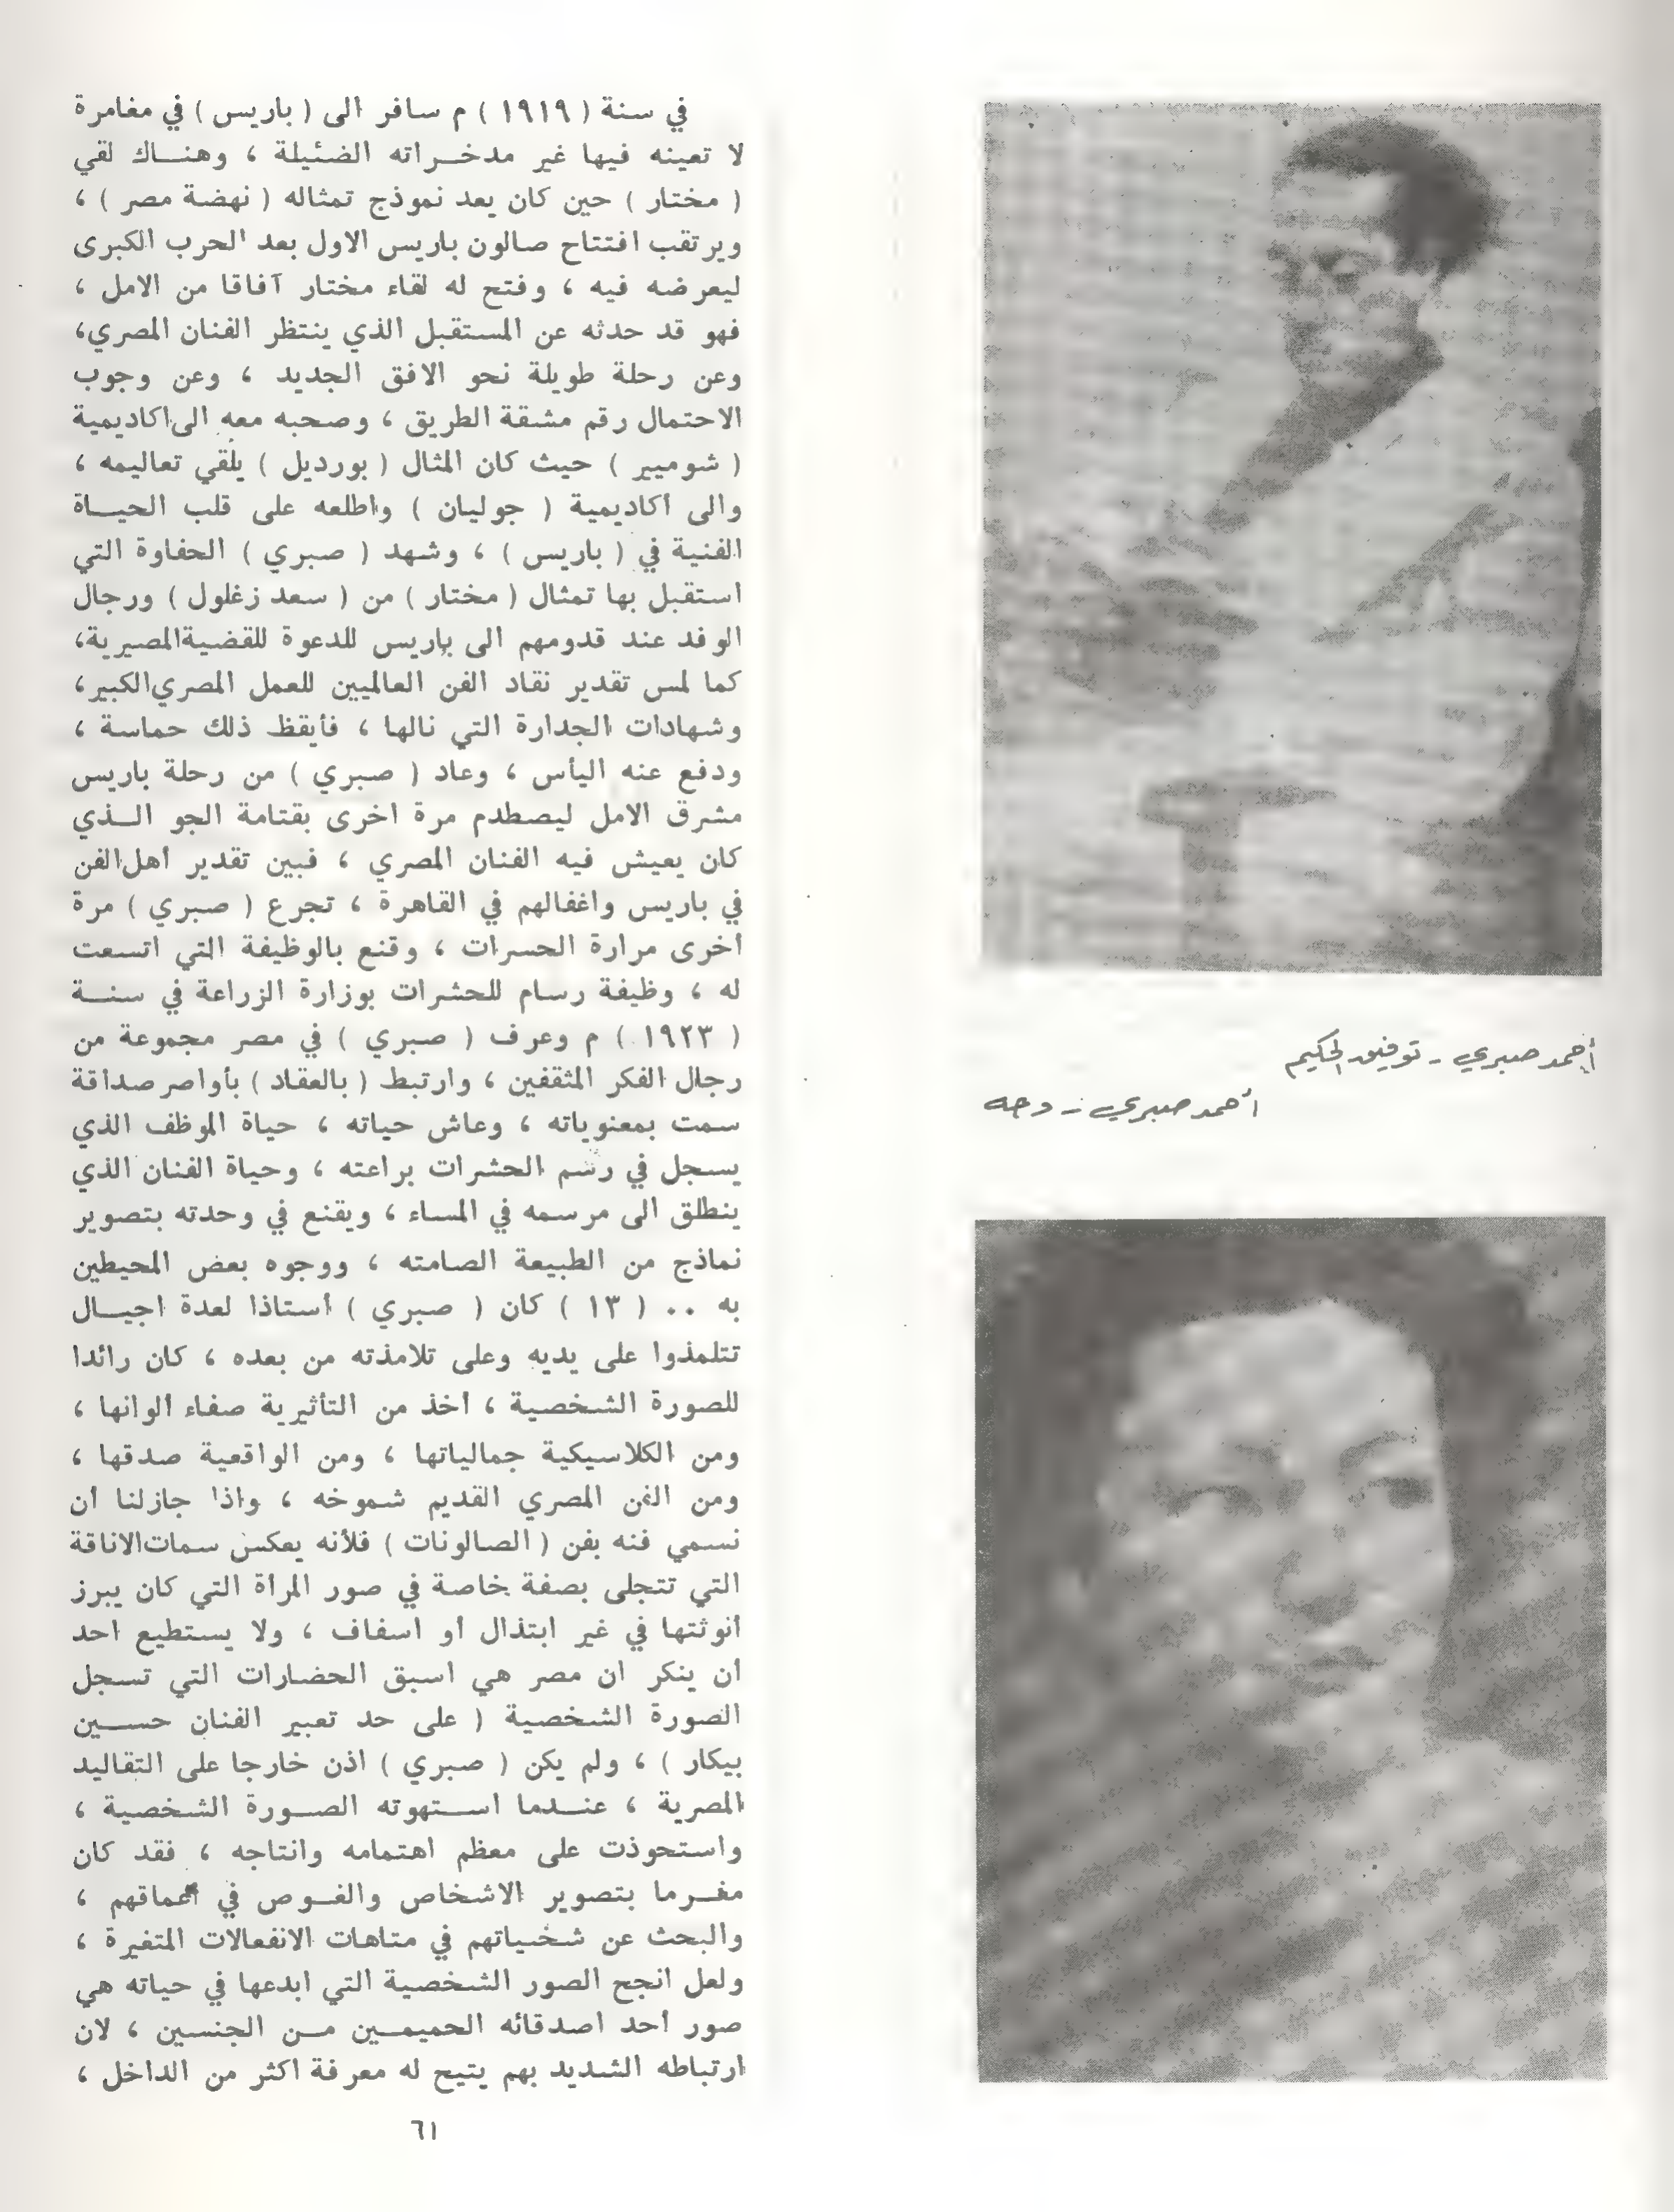 أحمد صبري - توفيق الحكيم
أحمد صبري - وجه
في سنة ( ١٩١٩ ) م سافر الى ( باريس ) في مغامرة
لا تعينه فيها غير مدخراته الضئيلة ، وهناك لقي
( مختار ) حين كان يعد نموذج تمثاله ( نهضة مصر ) ،
ويرتقب افتتاح صالون باريس الاول بعد الحرب الكبرى
ليعرضه فيه ، وفتح له لقاء مختار آفاقا من الامل ،
فهو قد حدثه عن المستقبل الذي ينتظر الفنان المصري،
وعن رحلة طويلة نحو الافق الجديد ، وعن وجوب
الاحتمال رقم مشقة الطريق ، وصحبه معه الى اكاديمية
( شوميير ) حيث كان المثال ( بورديل ) يلقي تعاليمه ،
والى أكاديمية ( جوليان ) واطلعه على قلب الحياة
الفنية في ( باريس ) ، وشهد ( صبري ) الحفاوة التي
استقبل بها تمثال ( مختار ) من ( سعد زغلول ) ورجال
الوفد عند قدومهم الى باريس للدعوة للقضية المصيرية،
كما لمس تقدير نقاد الفن العالميين للعمل المصري الكبير،
وشهادات الجدارة التي نالها ، فأيقظ ذلك حماسة ،
ودفع عنه اليأس ، وعاد ( صبري ) من رحلة باريس
مشرق الامل ليصطدم مرة اخرى بقتامة الجو الذي
كان يعيش فيه الفنان المصري ، فبين تقدير أهل الفن
في باريس واغفالهم في القاهرة ، تجرع ( صبري ) مرة
أخرى مرارة الحسرات ، وقنع بالوظيفة التي اتسعت
له ، وظيفة رسام للحشرات بوزارة الزراعة في سنة
( ١٩٢٣ ) م وعرف ( صبري ) في مصر مجموعة من
رجال الفكر المثقفين ، وارتبط ( بالعقاد ) بأواصر صداقة
سمت بمعنوياته ، وعاش حياته ، حياة الموظف الذي
يسجل في رسم الحشرات براعته ، وحياة الفنان الذي
ينطلق الى مرسمه في المساء ، ويقنع في وحدته بتصوير
نماذج من الطبيعة الصامته ، ووجوه بعض المحيطين
به .. ( ١٣ ) كان ( صبري ) أستاذا لعدة اجيال
تتلمذوا على يديه وعلى تلامذته من بعده ، كان رائدا
للصورة الشخصية ، أخذ من التأثيرية صفاء ألوانها ،
ومن الكلاسيكية جمالياتها ، ومن الواقعية صدقها ،
ومن الفن المصري القديم شموخه ، واذا جازلنا أن
نسمي فنه بفن ( الصالونات ) فلأنه يعكس سمات الاناقة
التي تتجلى بصفة خاصة في صور المرأة التي كان يبرز
أنوثتها في غير ابتذال أو اسفاف ، ولا يستطيع احد
أن ينكر ان مصر هي اسبق الحضارات التي تسجل
الصورة الشخصية ( على حد تعبير الفنان حسين
بيكار ) ، ولم يكن ( صبري ) اذن خارجا على التقاليد
المصرية ، عندما استهوته الصورة الشخصية ،
واستحوذت على معظم اهتمامه وانتاجه ، فقد كان
مغرما بتصوير الاشخاص والغوص في أعماقهم ،
والبحث عن شخيـاتهم في متاهات الانفعالات المتغيرة ،
ولعل انجح الصور الشخصية التي ابدعها في حياته هي
صور أحد اصدقائه الحميمين من الجنسين ، لان
ارتباطه الشديد بهم يتيح له معرفة اكثر من الداخل ،
٦١